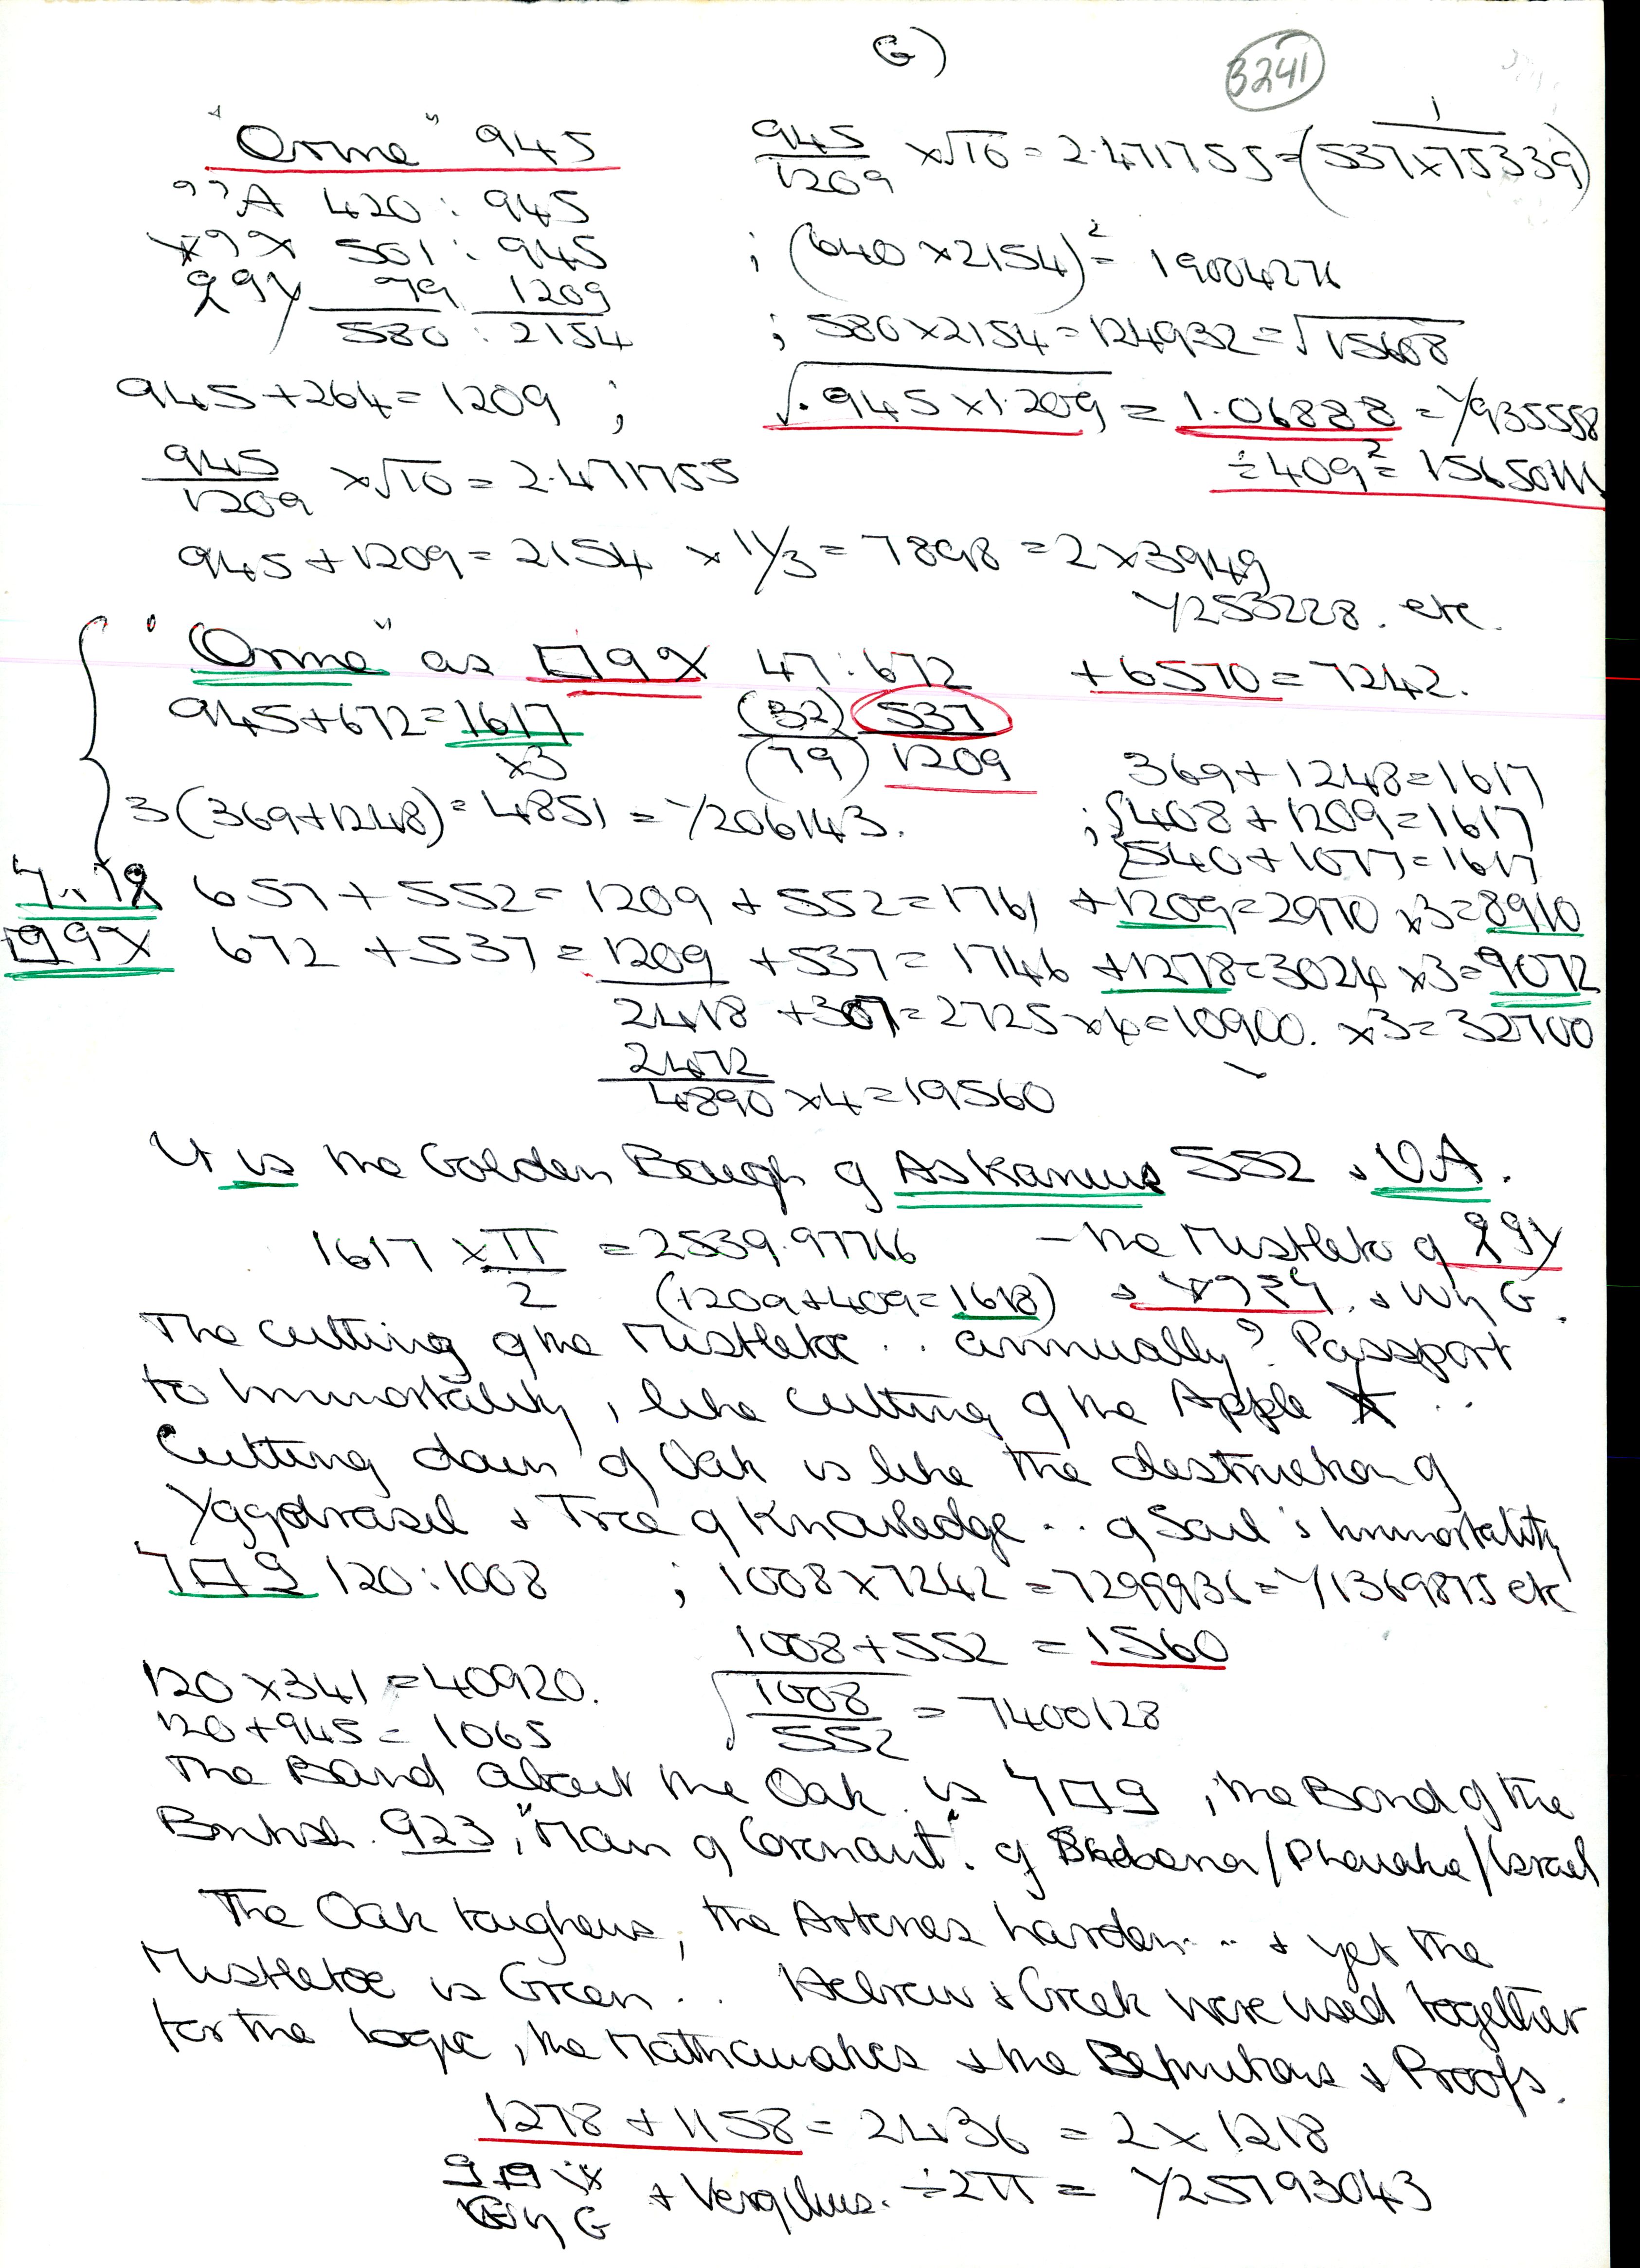 G)
3241
"Orme" 945
420 : 945
501 : 945
79 1209
580 : 2154
945/1209 ×√10 = 2·471755 = 1/(537×75339)
; (640 × 2154)² = 19004276
; 580 × 2154 = 124932 = √15608
945 + 264 = 1209 ;
√·945 × 1·209 = 1·06888 = Y935558
÷ 409² = 15650111
945/1209 ×√10 = 2·471755
945 + 1209 = 2154 × 11/3 = 7898 = 2 × 3949
Y253228. etc.
"Orme" as 47 : 672 + 6570 = 7242.
945 + 672 = 1617
×3
(32) 537
(79) 1209
369 + 1248 = 1617
3(369+1248) = 4851 = Y206143.
; 408 + 1209 = 1617
540 + 1077 = 1617
657 + 552 = 1209 + 552 = 1761 + 1209 = 2970 ×3 = 8910
672 + 537 = 1209 + 537 = 1746 + 1278 = 3024 ×3 = 9072
2418 + 307 = 2725 × 4 = 10900. ×3 = 32700
2472
4890 ×4 = 19560
It is the Golden Bough of Askanius 552 & VA.
1617 × π/2 = 2539·97766 - the Mistletoe of
(1209+409 = 1618) & Why G.
The cutting of the Mistletoe .. annually? Passport
to Immortality, like cutting of the Apple ..
Cutting down of Oak is like the destruction of
Yggdrasil & Tree of Knowledge .. of Soul's Immortality
120 : 1008 ; 1008 × 7242 = 7299936 = Y1369875 etc
1008 + 552 = 1560
120 × 341 = 40920. √1008/552 = 7400128
120 + 945 = 1065
The Band about the Oak is , the Bond of the
British. 923, "Man of Covenant". of /Israel
The Oak toughens, the Arteries harden .. .. & yet the
Mistletoe is Green .. Hebrew & Greek were used together
for the Logic, the Mathematics & the Definitions & Proofs.
1278 + 1158 = 2436 = 2 × 1218
G & Vergilius. ÷2π = Y25793043